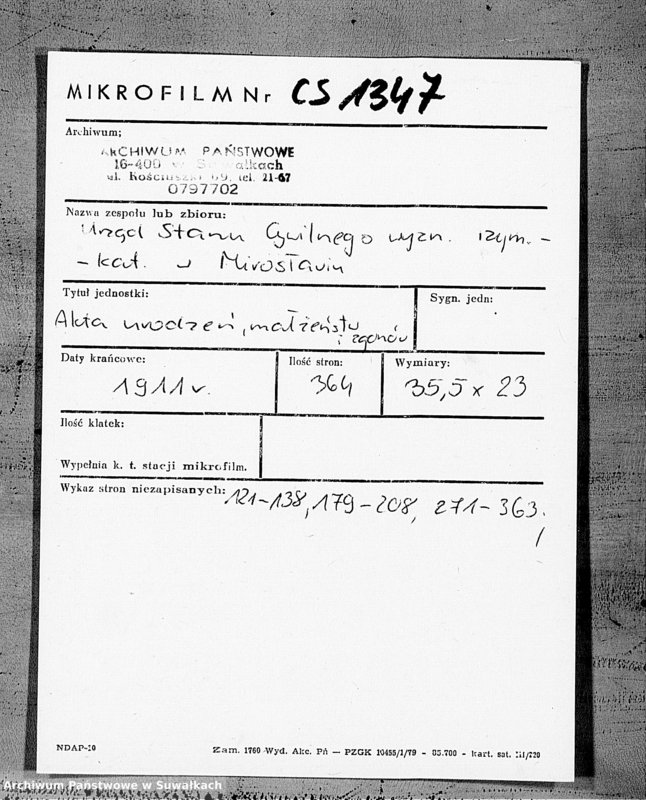 MIKROFILM Nr CS 1347
Archiwum;
ARCHIWUM PAŃSTWOWE
16-400 w Suwałkach
ul. Kościuszki 69, tel. 21-67
0797702
Nazwa zespołu lub zbioru:
Urząd Stanu Cywilnego wyzn. rzym.-
-kat. w Mirosławiu
Tytuł jednostki:
Sygn. jedn:
Akta urodzeń, małżeństw
i zgonów
Daty krańcowe:
Ilość stron:
Wymiary:
1911 r.
364
35,5 x 23
Ilość klatek:
Wypełnia k. t. stacji mikrofilm.
Wykaz stron niezapisanych: 121-138, 179-208, 271-363.
NDAP-10
Zam. 1760 Wyd. Akc. Pń — PZGK 10455/1/79 - 85.700 - kart. sat. III/220
Archiwum Państwowe w Suwałkach